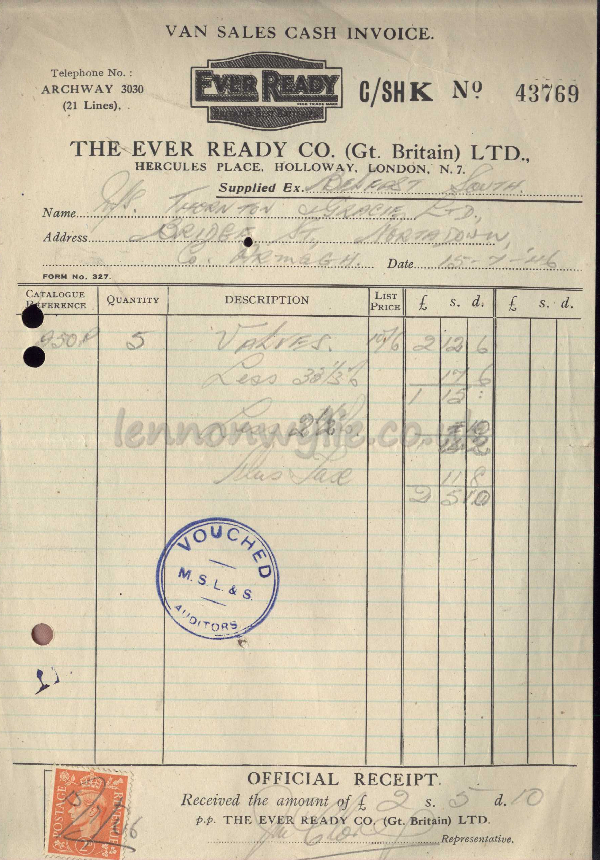 VAN SALES CASH INVOICE.
Telephone No. :
ARCHWAY 3030
(21 Lines).
EVER READY
C/SHK Nº 43769
THE EVER READY CO. (Gt. Britain) LTD.,
HERCULES PLACE, HOLLOWAY, LONDON, N. 7.
Supplied Ex. BELFAST SOUTH.
Name THORNTON GRACIE LTD.,
Address BRIDGE ST, PORTADOWN,
Co. ARMAGH. Date 15-7-46
FORM No. 327.
CATALOGUE REFERENCE QUANTITY DESCRIPTION LIST PRICE £ s. d. £ s. d.
5 VALVES. 10/6 2 12 6
Less 33⅓% 17 6
1 15 :
Less 2½%
lennonwylie.co.uk
Plus Tax 11 8
2 5 10
VOUCHED
M. S. L. & S.
AUDITORS
OFFICIAL RECEIPT.
Received the amount of £ 2 s. 5 d. 10
p.p. THE EVER READY CO. (Gt. Britain) LTD.
Representative.
POSTAGE REVENUE